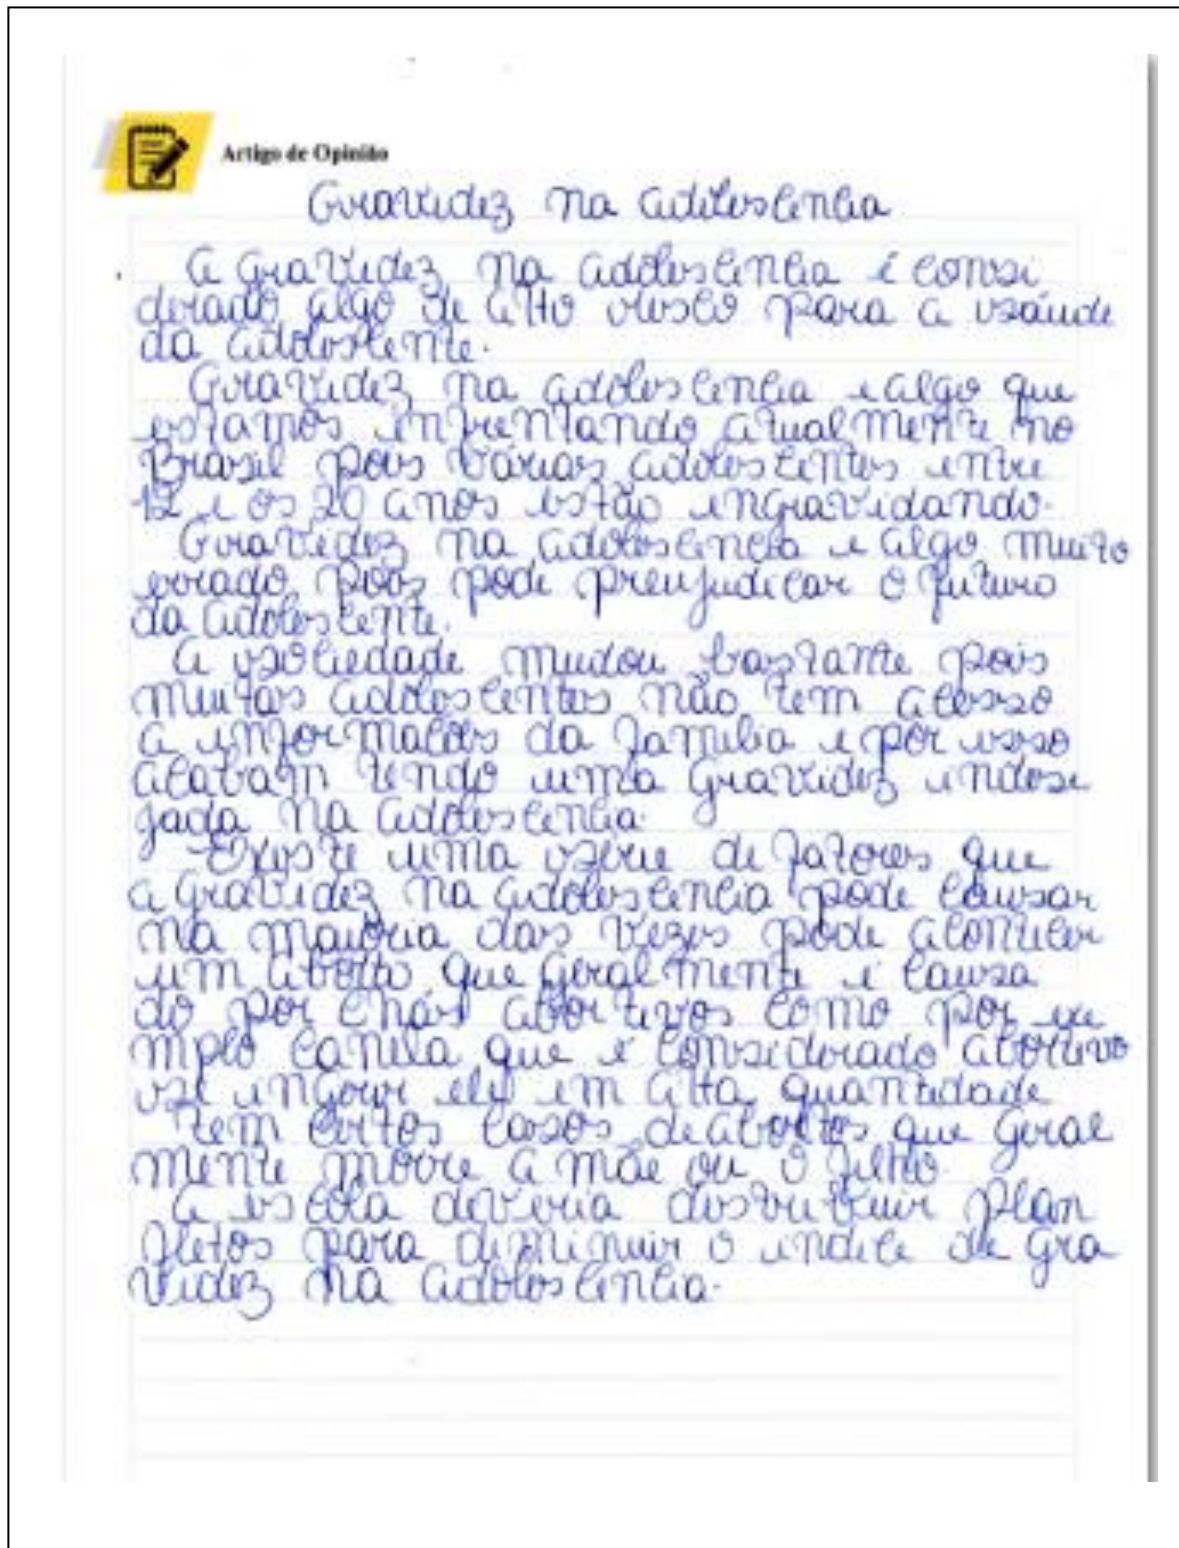 Artigo de Opinião
Gravidez na adolescência
A Gravidez na adolescência é consi
derado algo de alto risco para a saúde
da adolescente.
Gravidez na adolescência e algo que
estamos enfrentando atualmente no
Brasil pois várias adolescentes entre
12 e os 20 anos estão engravidando.
Gravidez na adolescência e algo muito
errado, pois pode prenjudicar o futuro
da adolescente.
A sociedade mudou bastante pois
muitas adolescentes não tem acesso
a informações da familia e por isso
acabam tendo uma gravidez indese
jada na adolescência.
Existe uma serie de fatores que
a gravidez na adolescência pode causar
na maioria das vezes pode acontecer
um aborto que geralmente é causa
do por chás abortivos como por exe
mplo canela que é considerado abortivo
se ingerir ele em alta quantidade
tem certos casos de abortos que geral
mente morre a mãe ou o filho.
A escola deveria distribuir plan
fletos para diminuir o indice de gra
videz na adolescência.